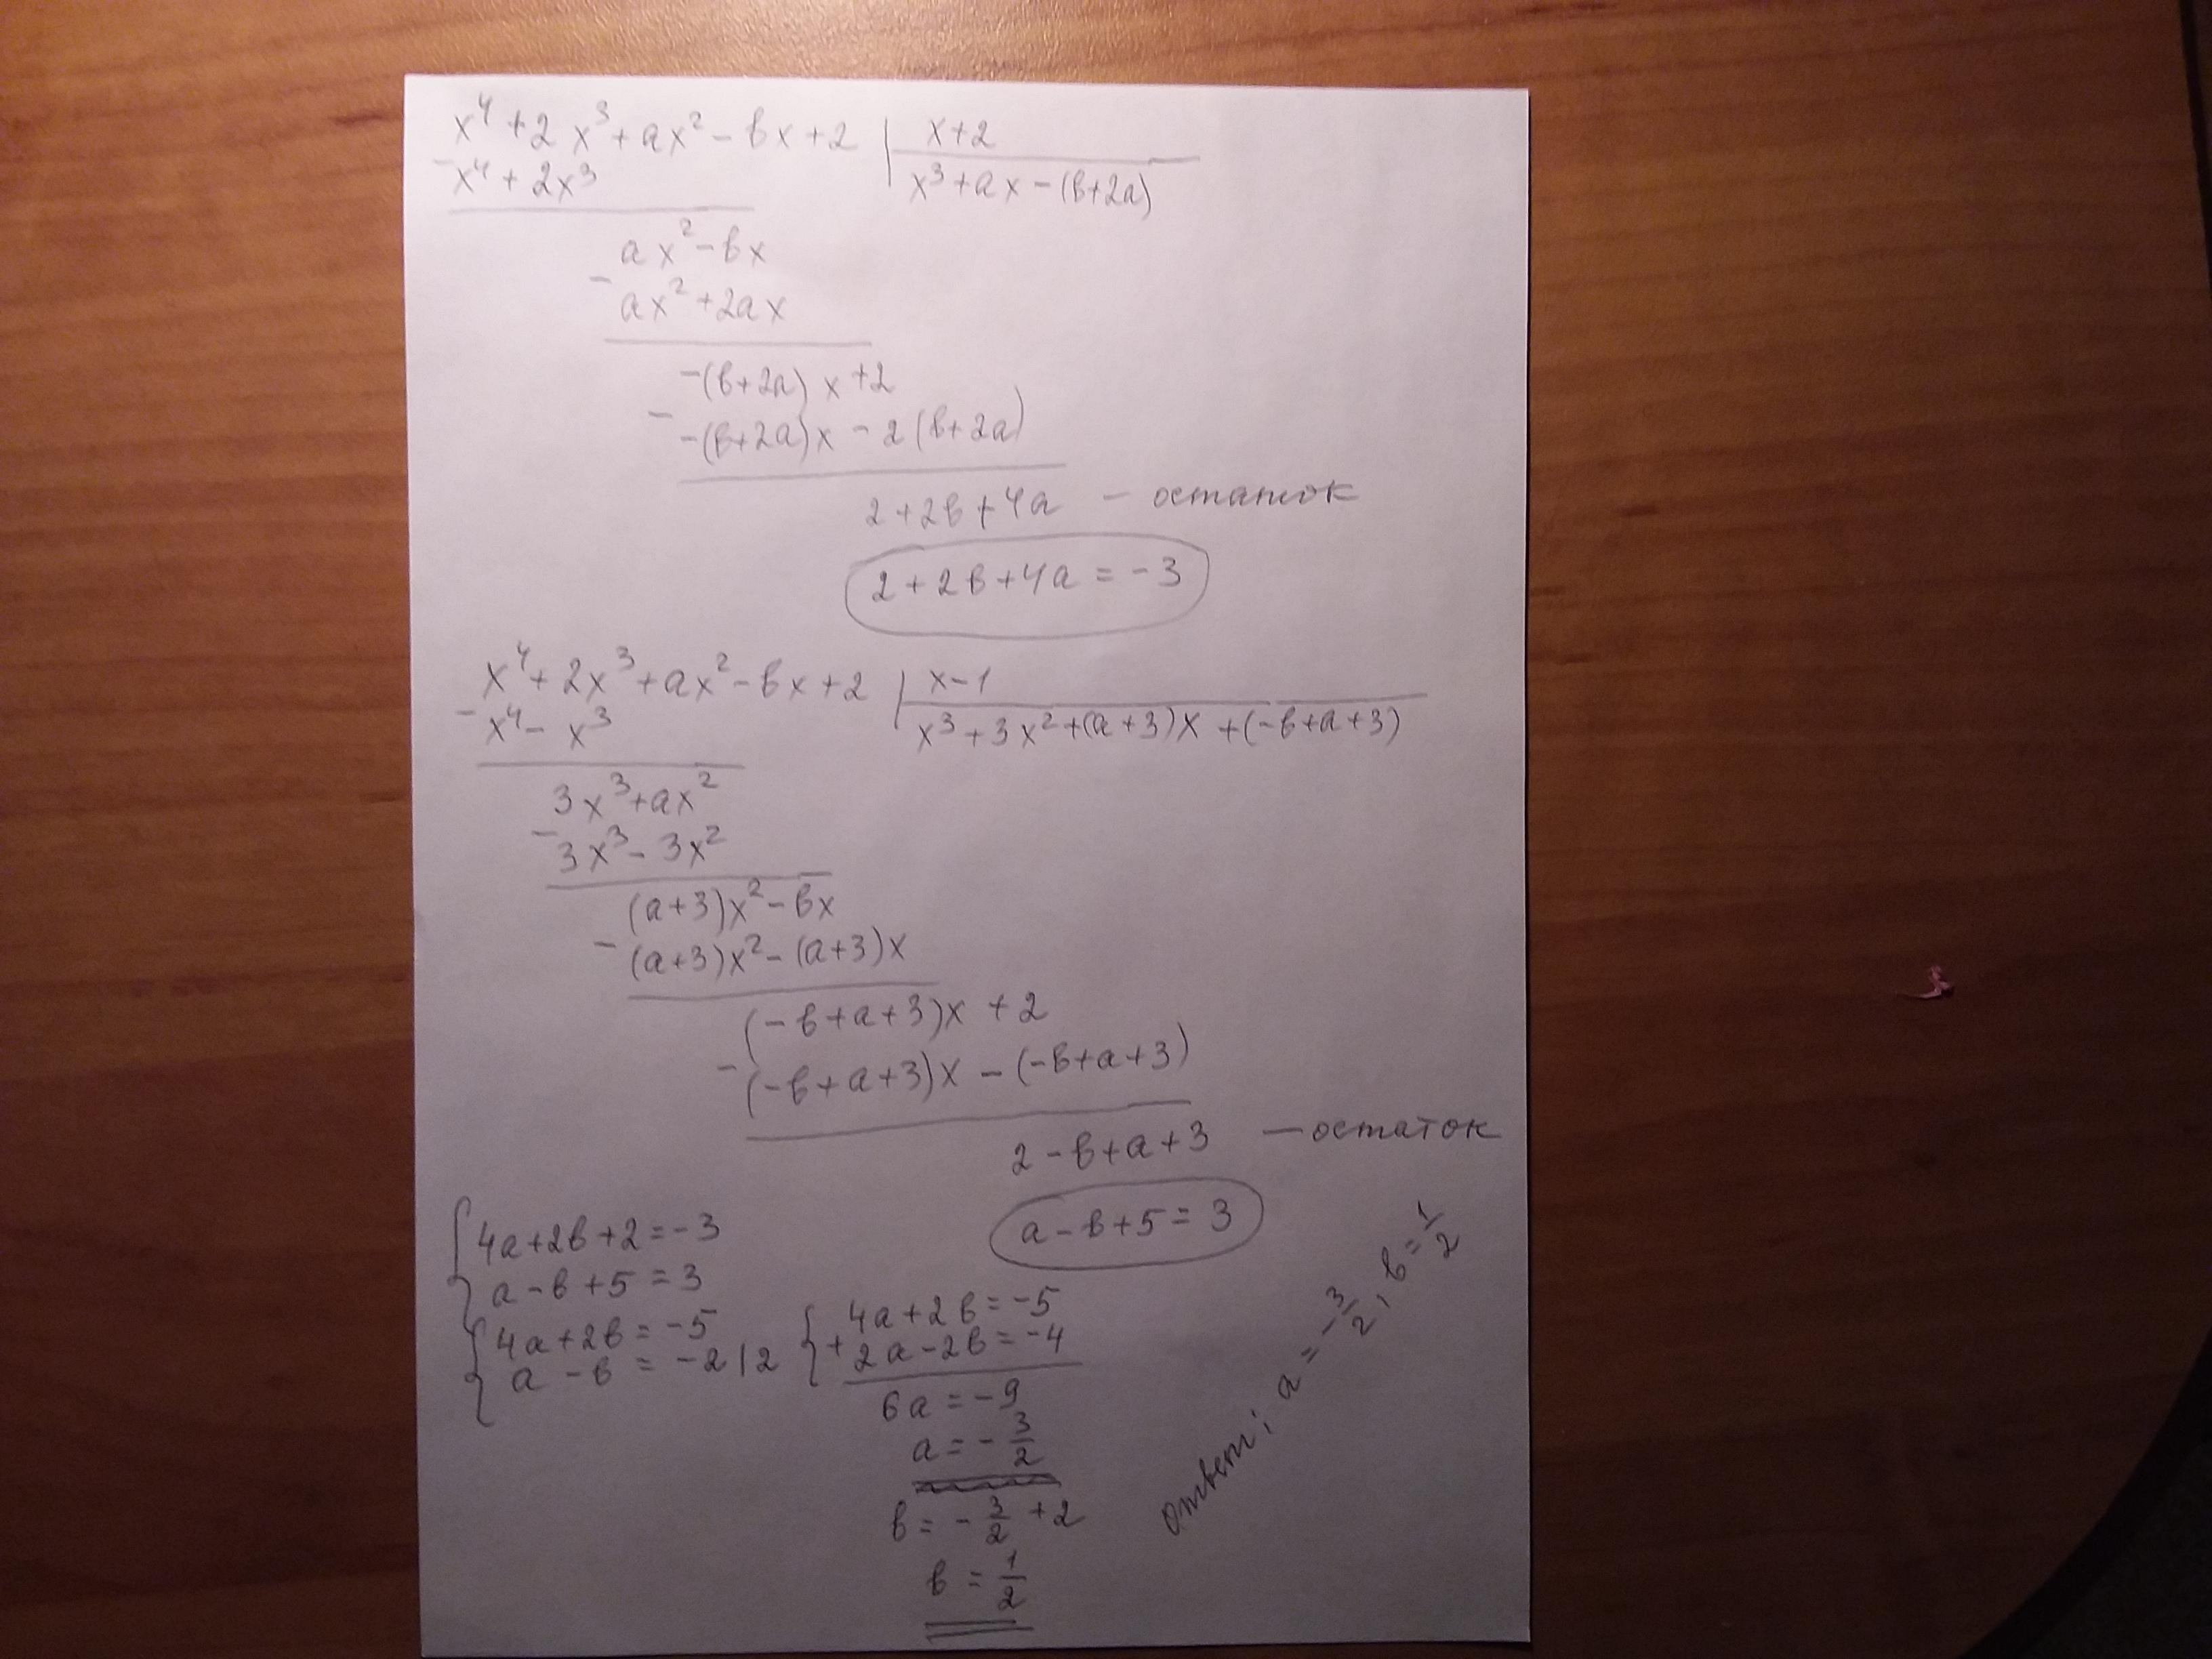 x⁴ + 2x³ + ax² - вx + 2 | x + 2
- x⁴ + 2x³ x³ + ax - (в+2a)
ax² - вx
- ax² + 2ax
-(в+2a)x + 2
- -(в+2a)x - 2(в+2a)
2 + 2в + 4a - остаток
2 + 2в + 4a = -3
x⁴ + 2x³ + ax² - вx + 2 | x - 1
- x⁴ - x³ x³ + 3x² + (a+3)x + (-в+a+3)
3x³ + ax²
- 3x³ - 3x²
(a+3)x² - вx
- (a+3)x² - (a+3)x
(-в+a+3)x + 2
- (-в+a+3)x - (-в+a+3)
2 - в + a + 3 — остаток
a - в + 5 = 3
{ 4a + 2в + 2 = -3
a - в + 5 = 3
{ 4a + 2в = -5
a - в = -2 | 2
{ 4a + 2в = -5
+ 2a - 2в = -4
6a = -9
a = -3/2
в = -3/2 + 2
в = 1/2
ответ: a = -3/2, в = 1/2